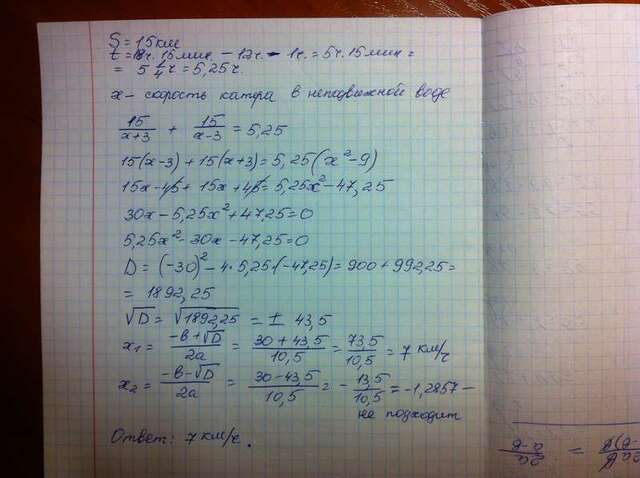 S = 15 км
t = 18ч. 15мин. - 12ч. - 1ч. = 5ч. 15мин =
= 5 1/4 ч = 5,25ч.
x - скорость катера в неподвижной воде
15/(x+3) + 15/(x-3) = 5,25
15(x-3) + 15(x+3) = 5,25(x²-9)
15x-45+ 15x +45= 5,25x² - 47,25
30x - 5,25x² + 47,25 = 0
5,25x² - 30x - 47,25 = 0
D = (-30)² - 4·5,25·(-47,25) = 900 + 992,25 =
= 1892,25
√D = √1892,25 = ± 43,5
x₁ = (-в+√D)/2a = (30+43,5)/10,5 = 73,5/10,5 = 7 км/ч
x₂ = (-в-√D)/2a = (30-43,5)/10,5 = -13,5/10,5 = -1,2857 -
не подходит
Ответ: 7 км/ч.